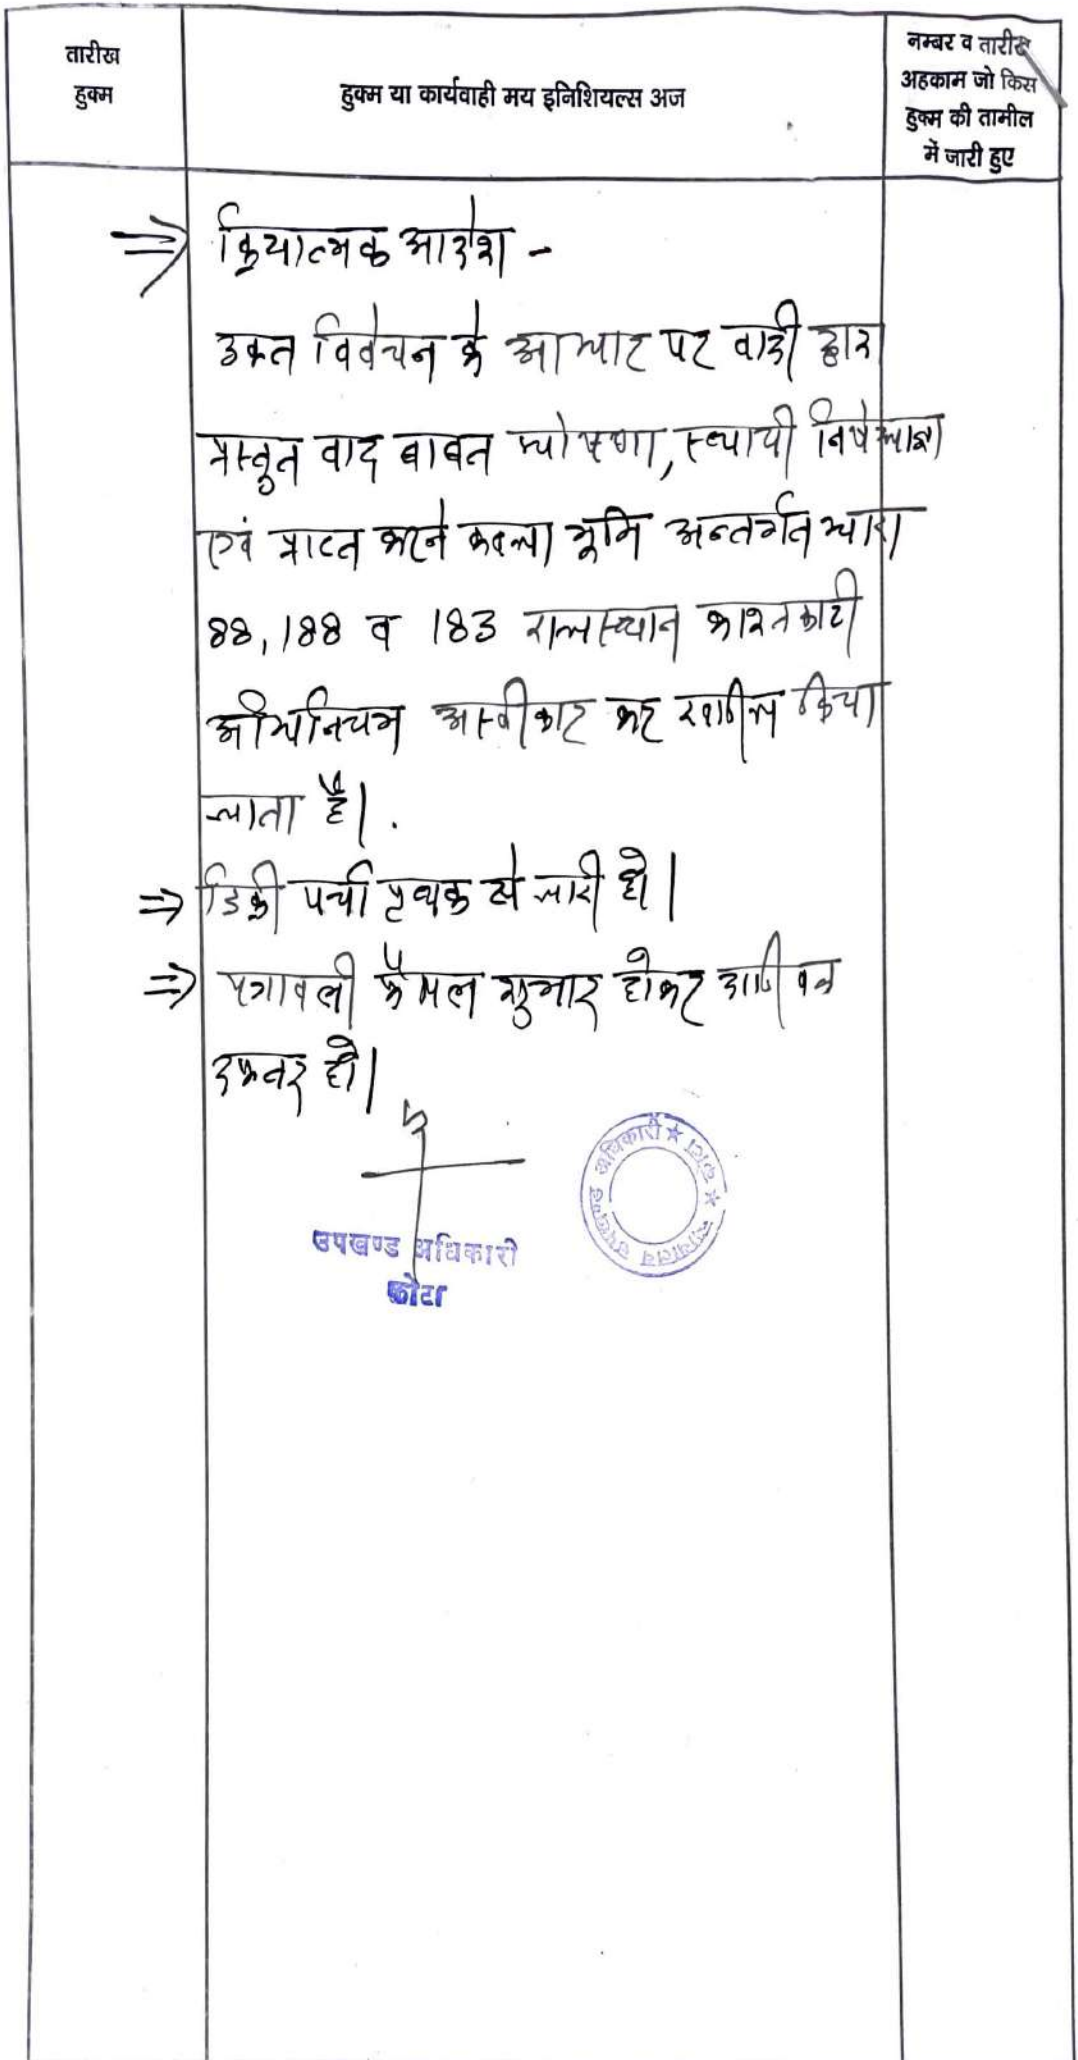 तारीख
हुक्म
हुक्म या कार्यवाही मय इनिशियल्स अज
नम्बर व तारीख
अहकाम जो किस
हुक्म की तामील
में जारी हुए
⇒ क्रियात्मक आदेश -
उक्त विवेचन के आधार पर वादी द्वारा
प्रस्तुत वाद बाबत घोषणा, स्थायी निषेधाज्ञा
एवं प्राप्त करने कब्जा भूमि अन्तर्गत धारा
88, 188 व 183 राजस्थान काश्तकारी
अधिनियम अस्वीकार कर खारीज किया
जाता है।
⇒ डिक्री पर्चा पृथक से जारी हो।
⇒ पत्रावली फैसल शुमार होकर दाखिल
दफ्तर हो।
उपखण्ड अधिकारी
कोटा
न्यायालय उपखण्ड अधिकारी ★ कोटा ★